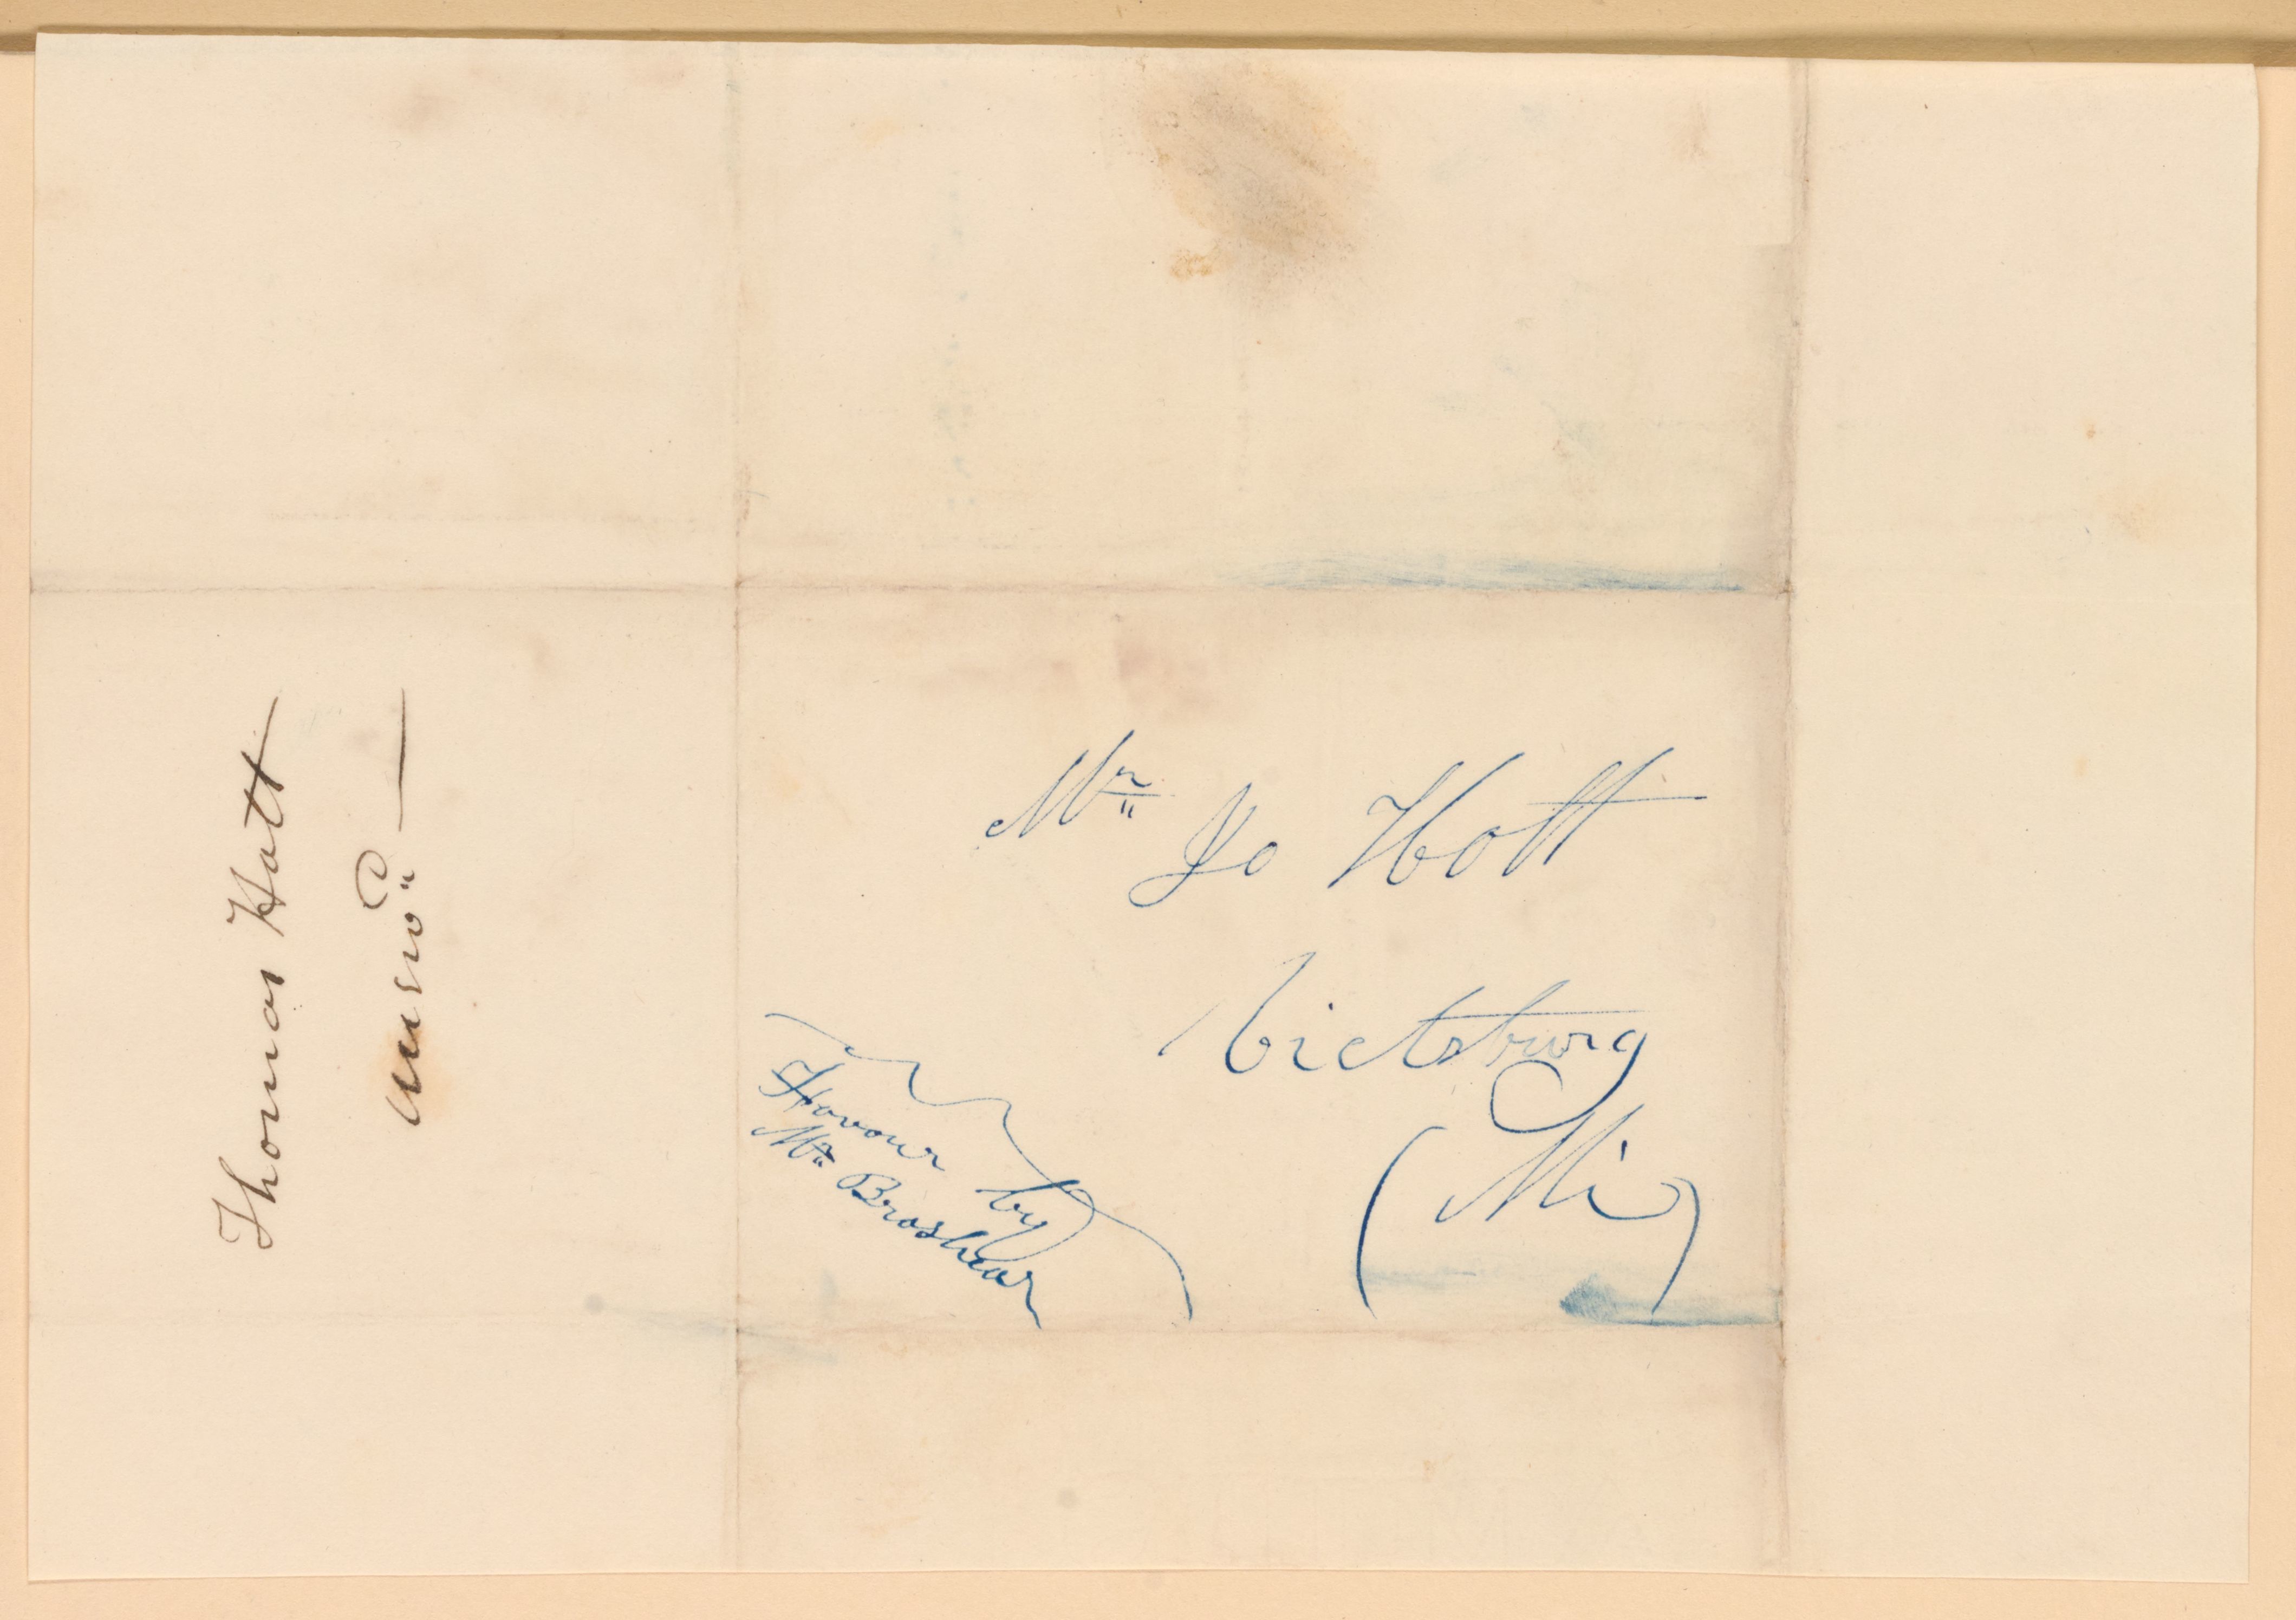 Mr Jo Hott
Vicksburg
(Mi)
Favour by
Mr Broshear
Thomas Hott